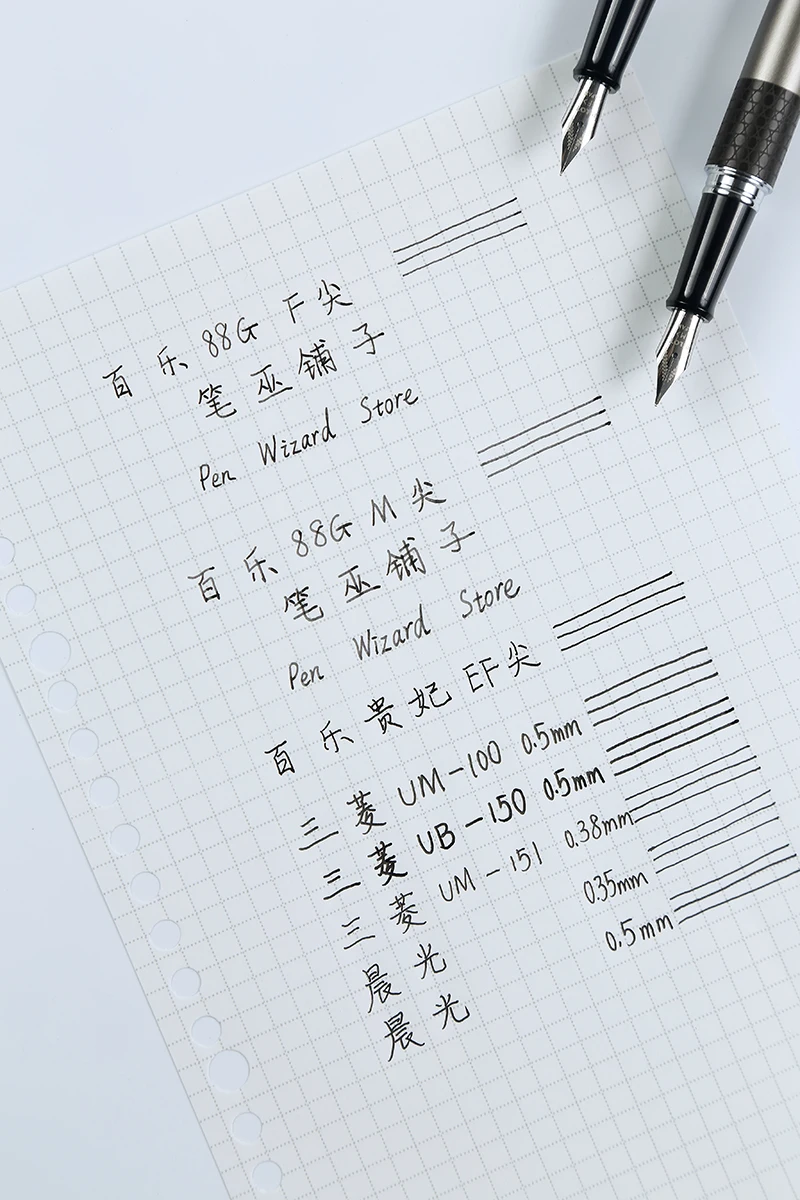 百乐 88G F尖
笔巫铺子
Pen Wizard Store
百乐 88G M尖
笔巫铺子
Pen Wizard Store
百乐贵妃 EF尖
三菱 UM-100 0.5mm
三菱 UB-150 0.5mm
三菱 UM-151 0.38mm
晨光 0.35mm
晨光 0.5mm